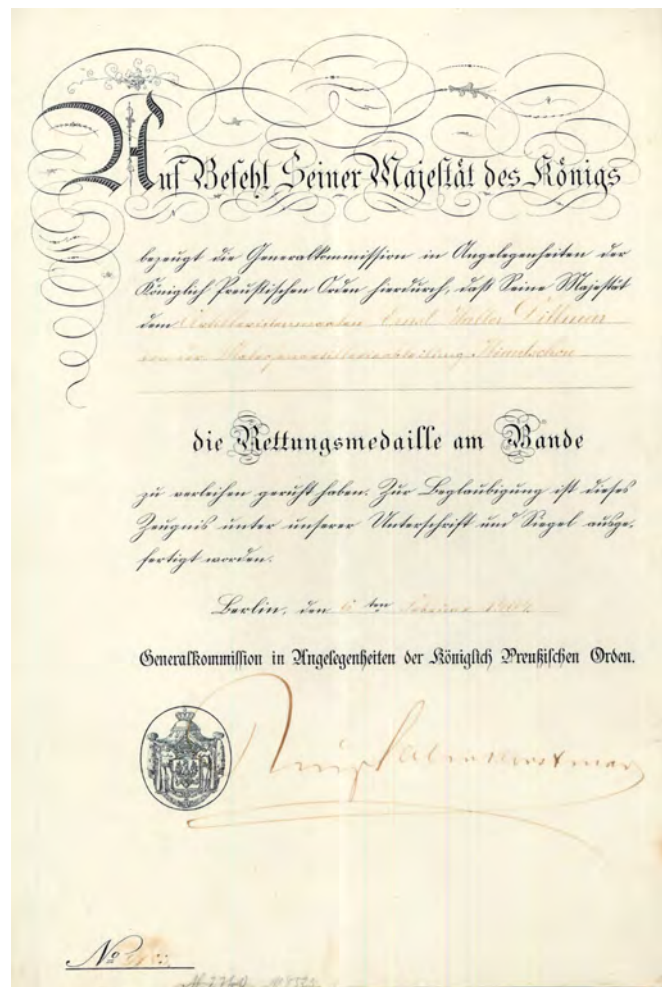 Auf Befehl Seiner Majestät des Königs
bezeugt die Generalkommission in Angelegenheiten der
Königlich Preußischen Orden hierdurch, daß Seine Majestät
dem Ernst Walter Dittmer
von der Kiautschou
die Rettungsmedaille am Bande
zu verleihen geruht haben. Zur Beglaubigung ist dieses
Zeugnis unter unserer Unterschrift und Siegel ausge-
fertigt worden.
Berlin, den 6 ten Februar
Generalkommission in Angelegenheiten der Königlich Preußischen Orden.
No